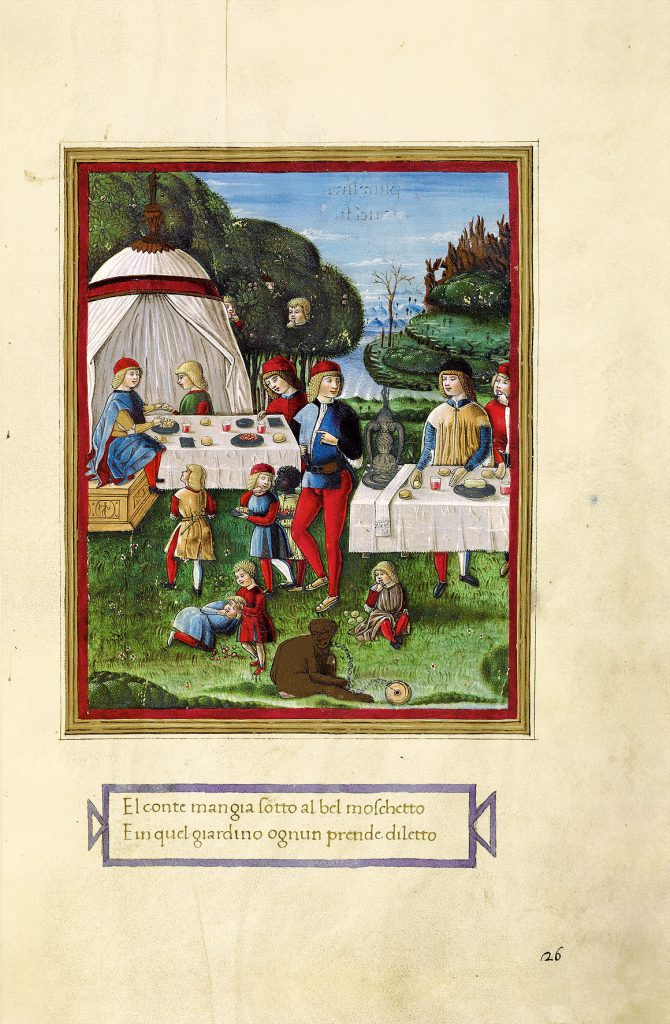 El conte mangia ſotto al bel moſchetto
E in quel giardino ognun prende diletto
26